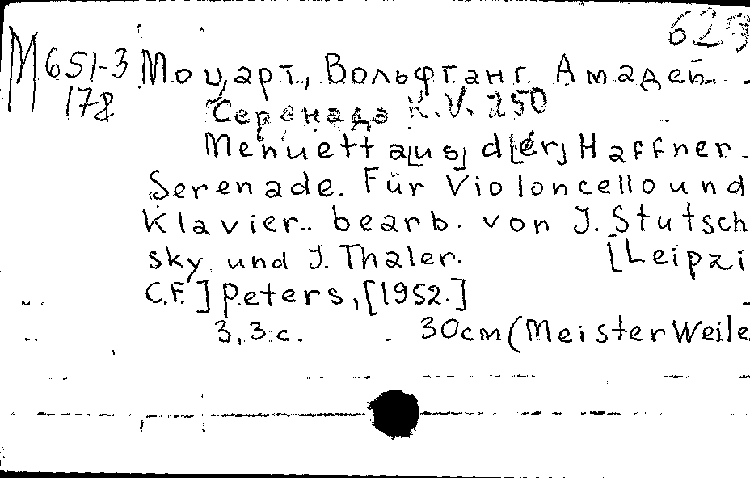 623
М651-3 Моцарт, Вольфганг Амадей.
178 Серенада K.V. 250
Menuett a[us] d[er] Haffner-
Serenade. Für Violoncello und
Klavier.. bearb. von J. Stutsch
sky und J. Thaler. [Leipzi
C.F.] Peters, [1952.]
3,3 с. 30см (Meister Weile